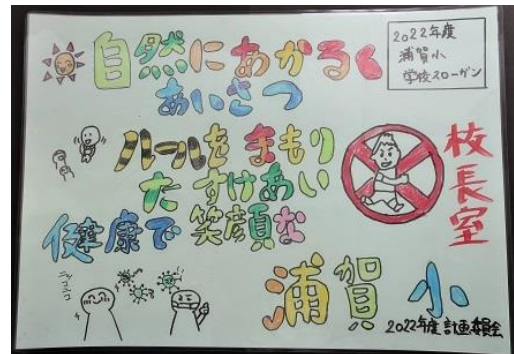 2022年度
浦賀小
学校スローガン
自然にあかるく
あいさつ
ルールをまもり
たすけあい
健康で笑顔な
浦賀小
校長室
ニッコニコ
2022年度計画委員会